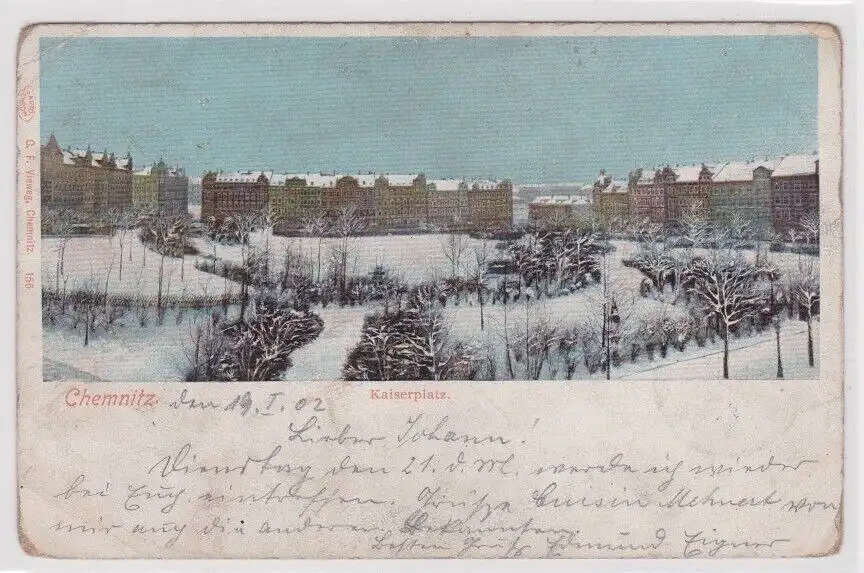 C. F. Vieweg, Chemnitz. 156
Chemnitz. den 19. I. 02
Kaiserplatz.
Lieber Johann!
Dienstag den 21. d. M. werde ich wieder
bei Euch eintreffen. Grüße Cousin Mehnert von
mir auch die anderen Bekannten.
Besten Gruß Edmund Eigner